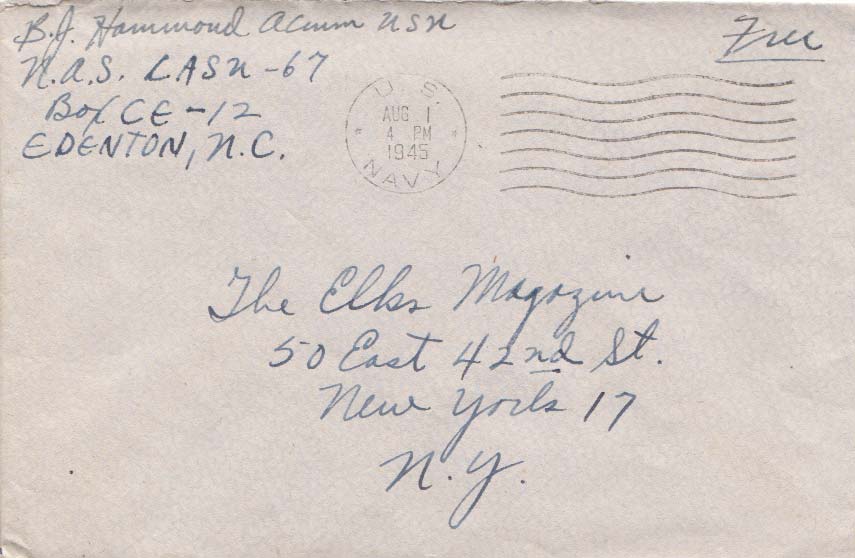 B.J. Hammond ACMM USN
N.A.S. CASU-67
Box CE-12
EDENTON, N.C.
Free
U.S.
AUG 1
4 PM
1945
NAVY
The Elks Magazine
50 East 42nd St.
New York 17
N.Y.